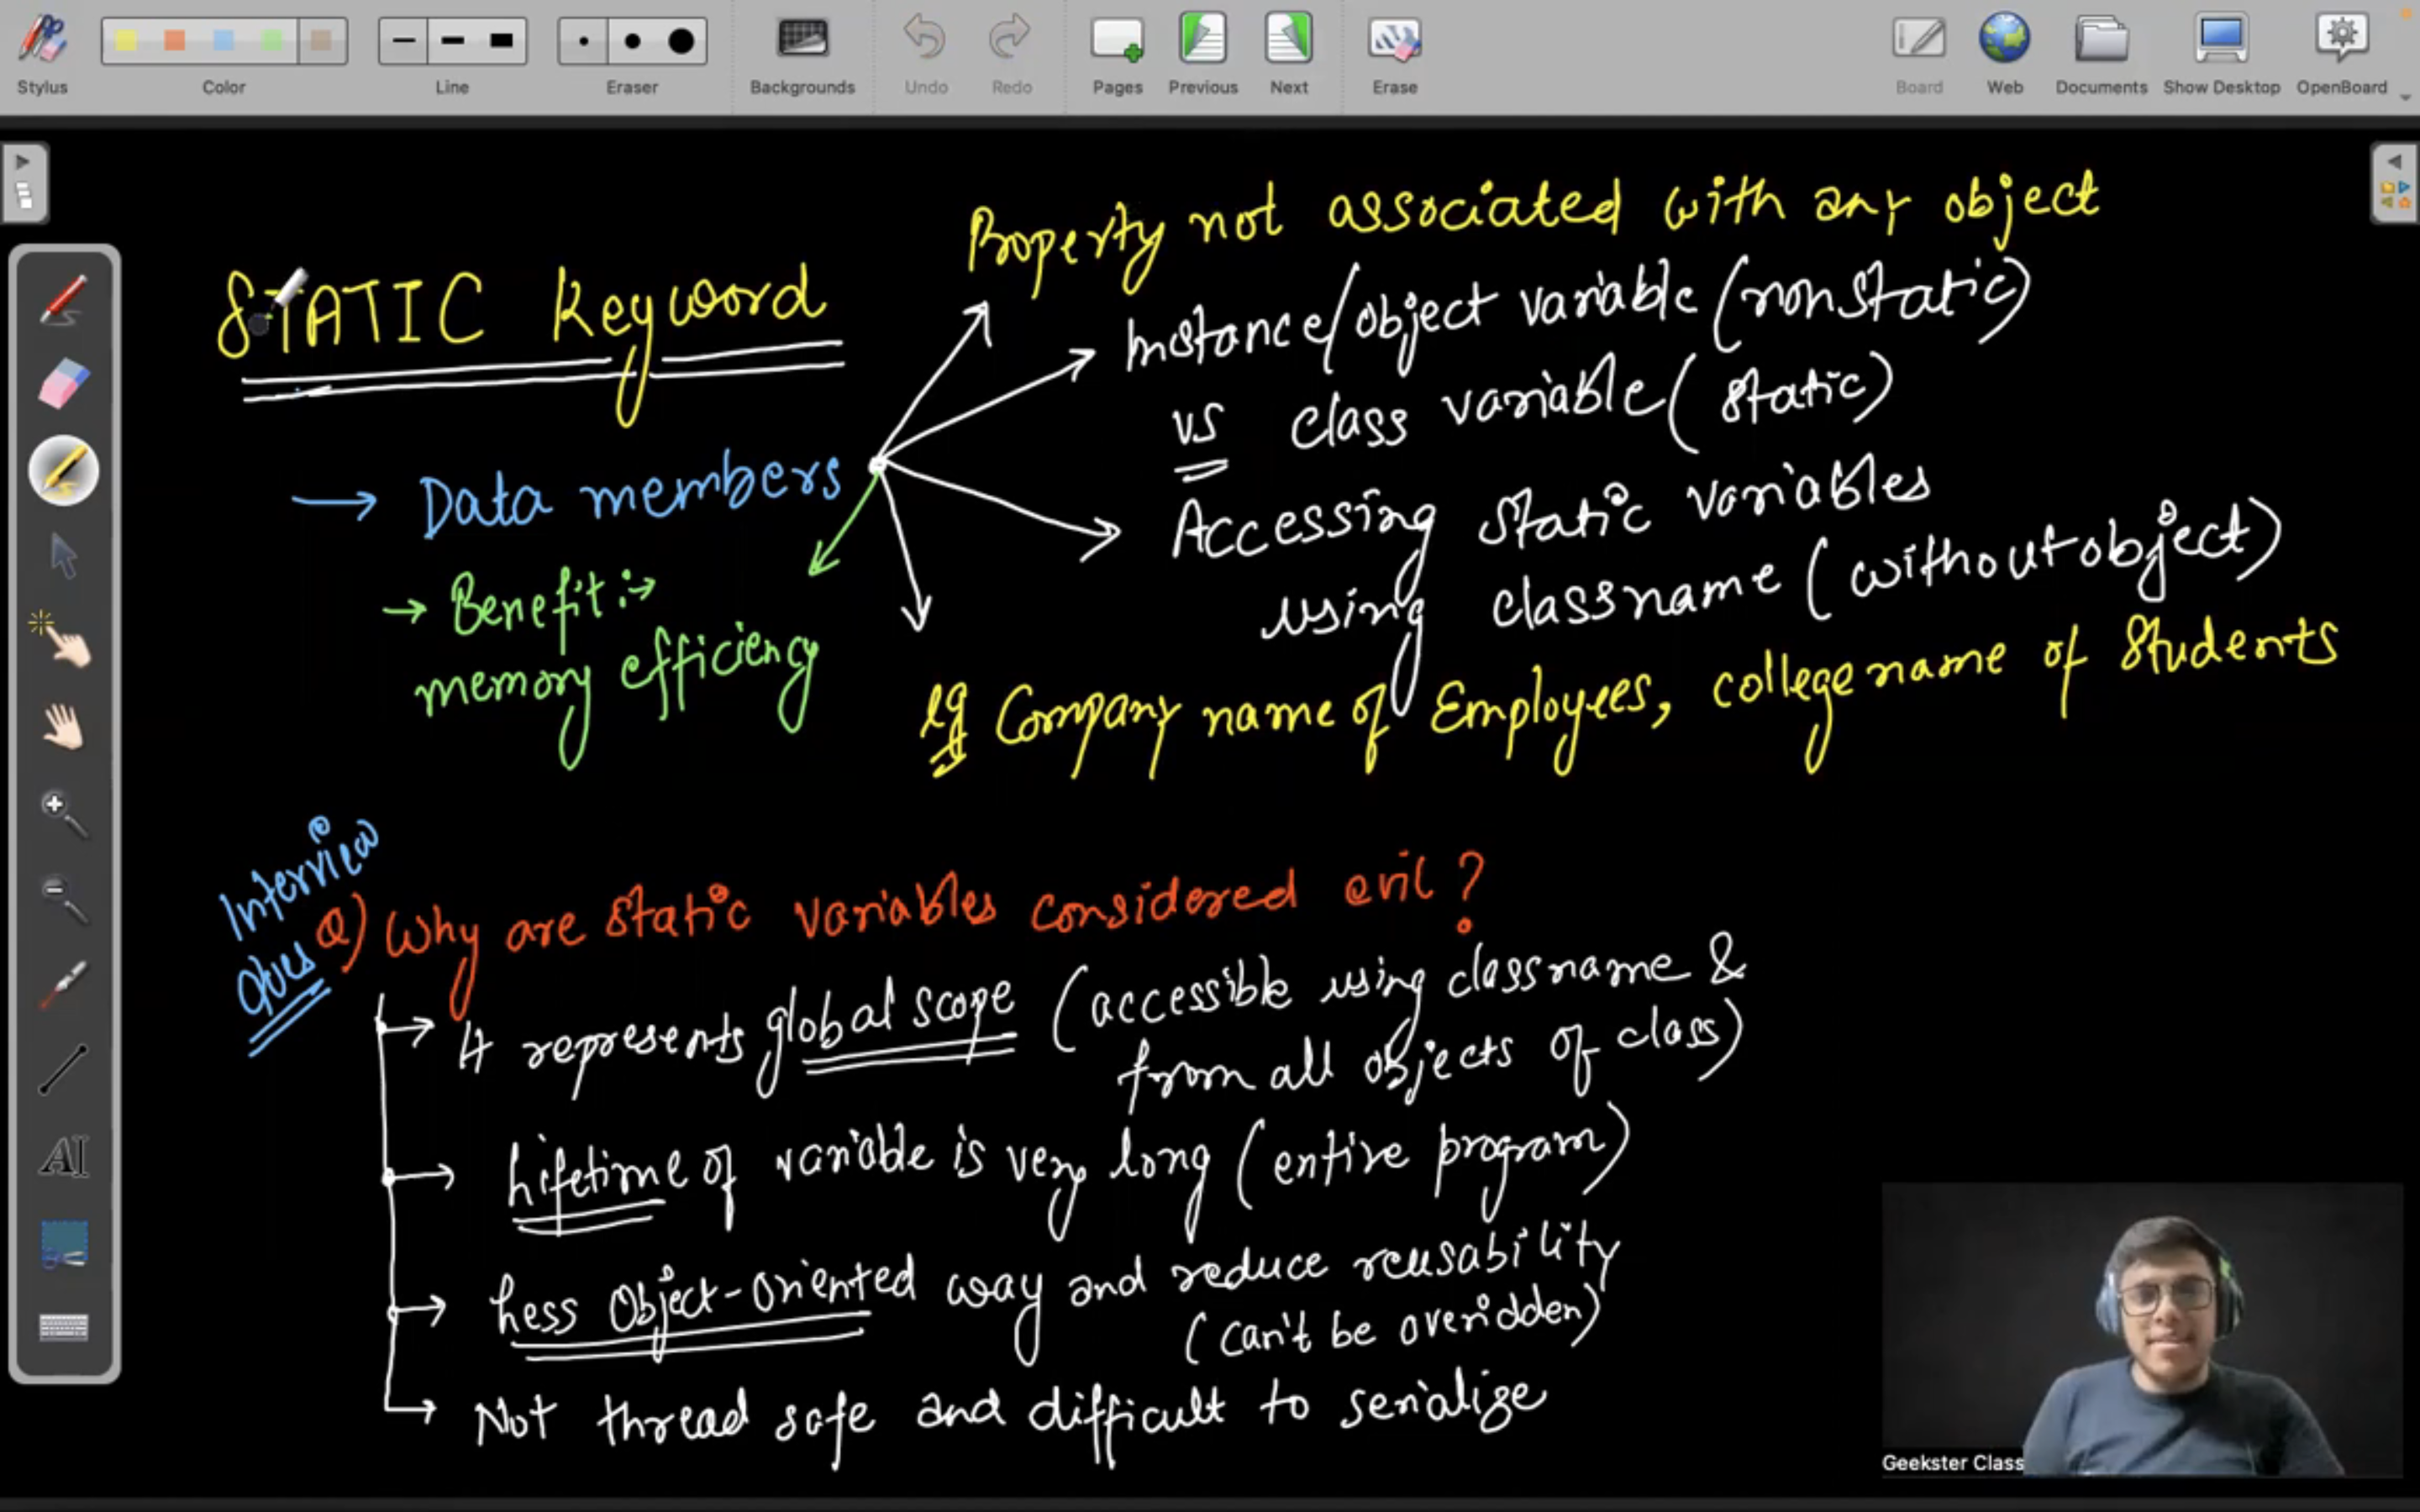 Stylus
Color
Line
Eraser
Backgrounds
Undo
Redo
Pages
Previous
Next
Erase
Board
Web
Documents
Show Desktop
OpenBoard
STATIC Keyword
→ Data members
→ Benefit :→
memory efficiency
Property not associated with any object
Instance/object variable (nonstatic)
vs class variable (static)
Accessing static variables
using classname (without object)
eg Company name of Employees, college name of Students
Interview
Ques
Q) Why are static variables considered evil?
→ It represents global scope (accessible using classname &
from all objects of class)
→ Lifetime of variable is very long (entire program)
→ Less Object-Oriented way and reduce reusability
(can't be overidden)
→ Not thread safe and difficult to serialize
AI
Geekster Class